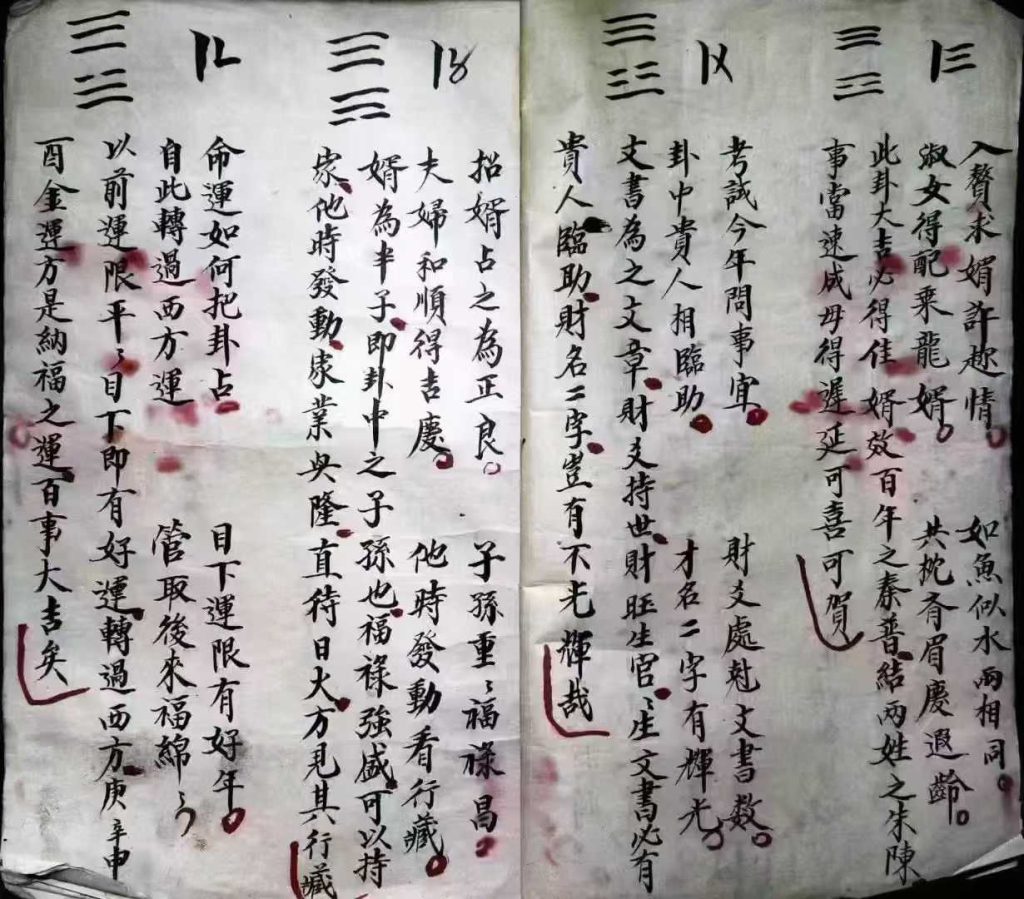 〡三
入贅求婿許趂情 如魚似水兩相同
淑女得配乘龍婿 共枕齊眉慶遐齡
此卦大吉必得佳婿效百年之秦晉結兩姓之朱陳
事當速成毋得遲延可喜可賀
〡〤
考試今年問事宜 財爻處尅文書数
卦中貴人相臨助 才名二字有輝光
文書為之文章財爻持世財旺生官〻生文書必有
貴人臨助財名二字豈有不光輝哉
〡〥
招婿占之為正良 子孫重〻福祿昌
夫婦和順得吉慶 他時發動看行藏
婿為半子即卦中之子孫也福祿強盛可以持
家他時發動家業興隆直待日久方見其行藏
〡〦
命運如何把卦占 目下運限有好年
自此轉過西方運 管取後來福綿〻
以前運限平〻目下即有好運轉過西方庚辛申
酉金運方是納福之運百事大吉矣